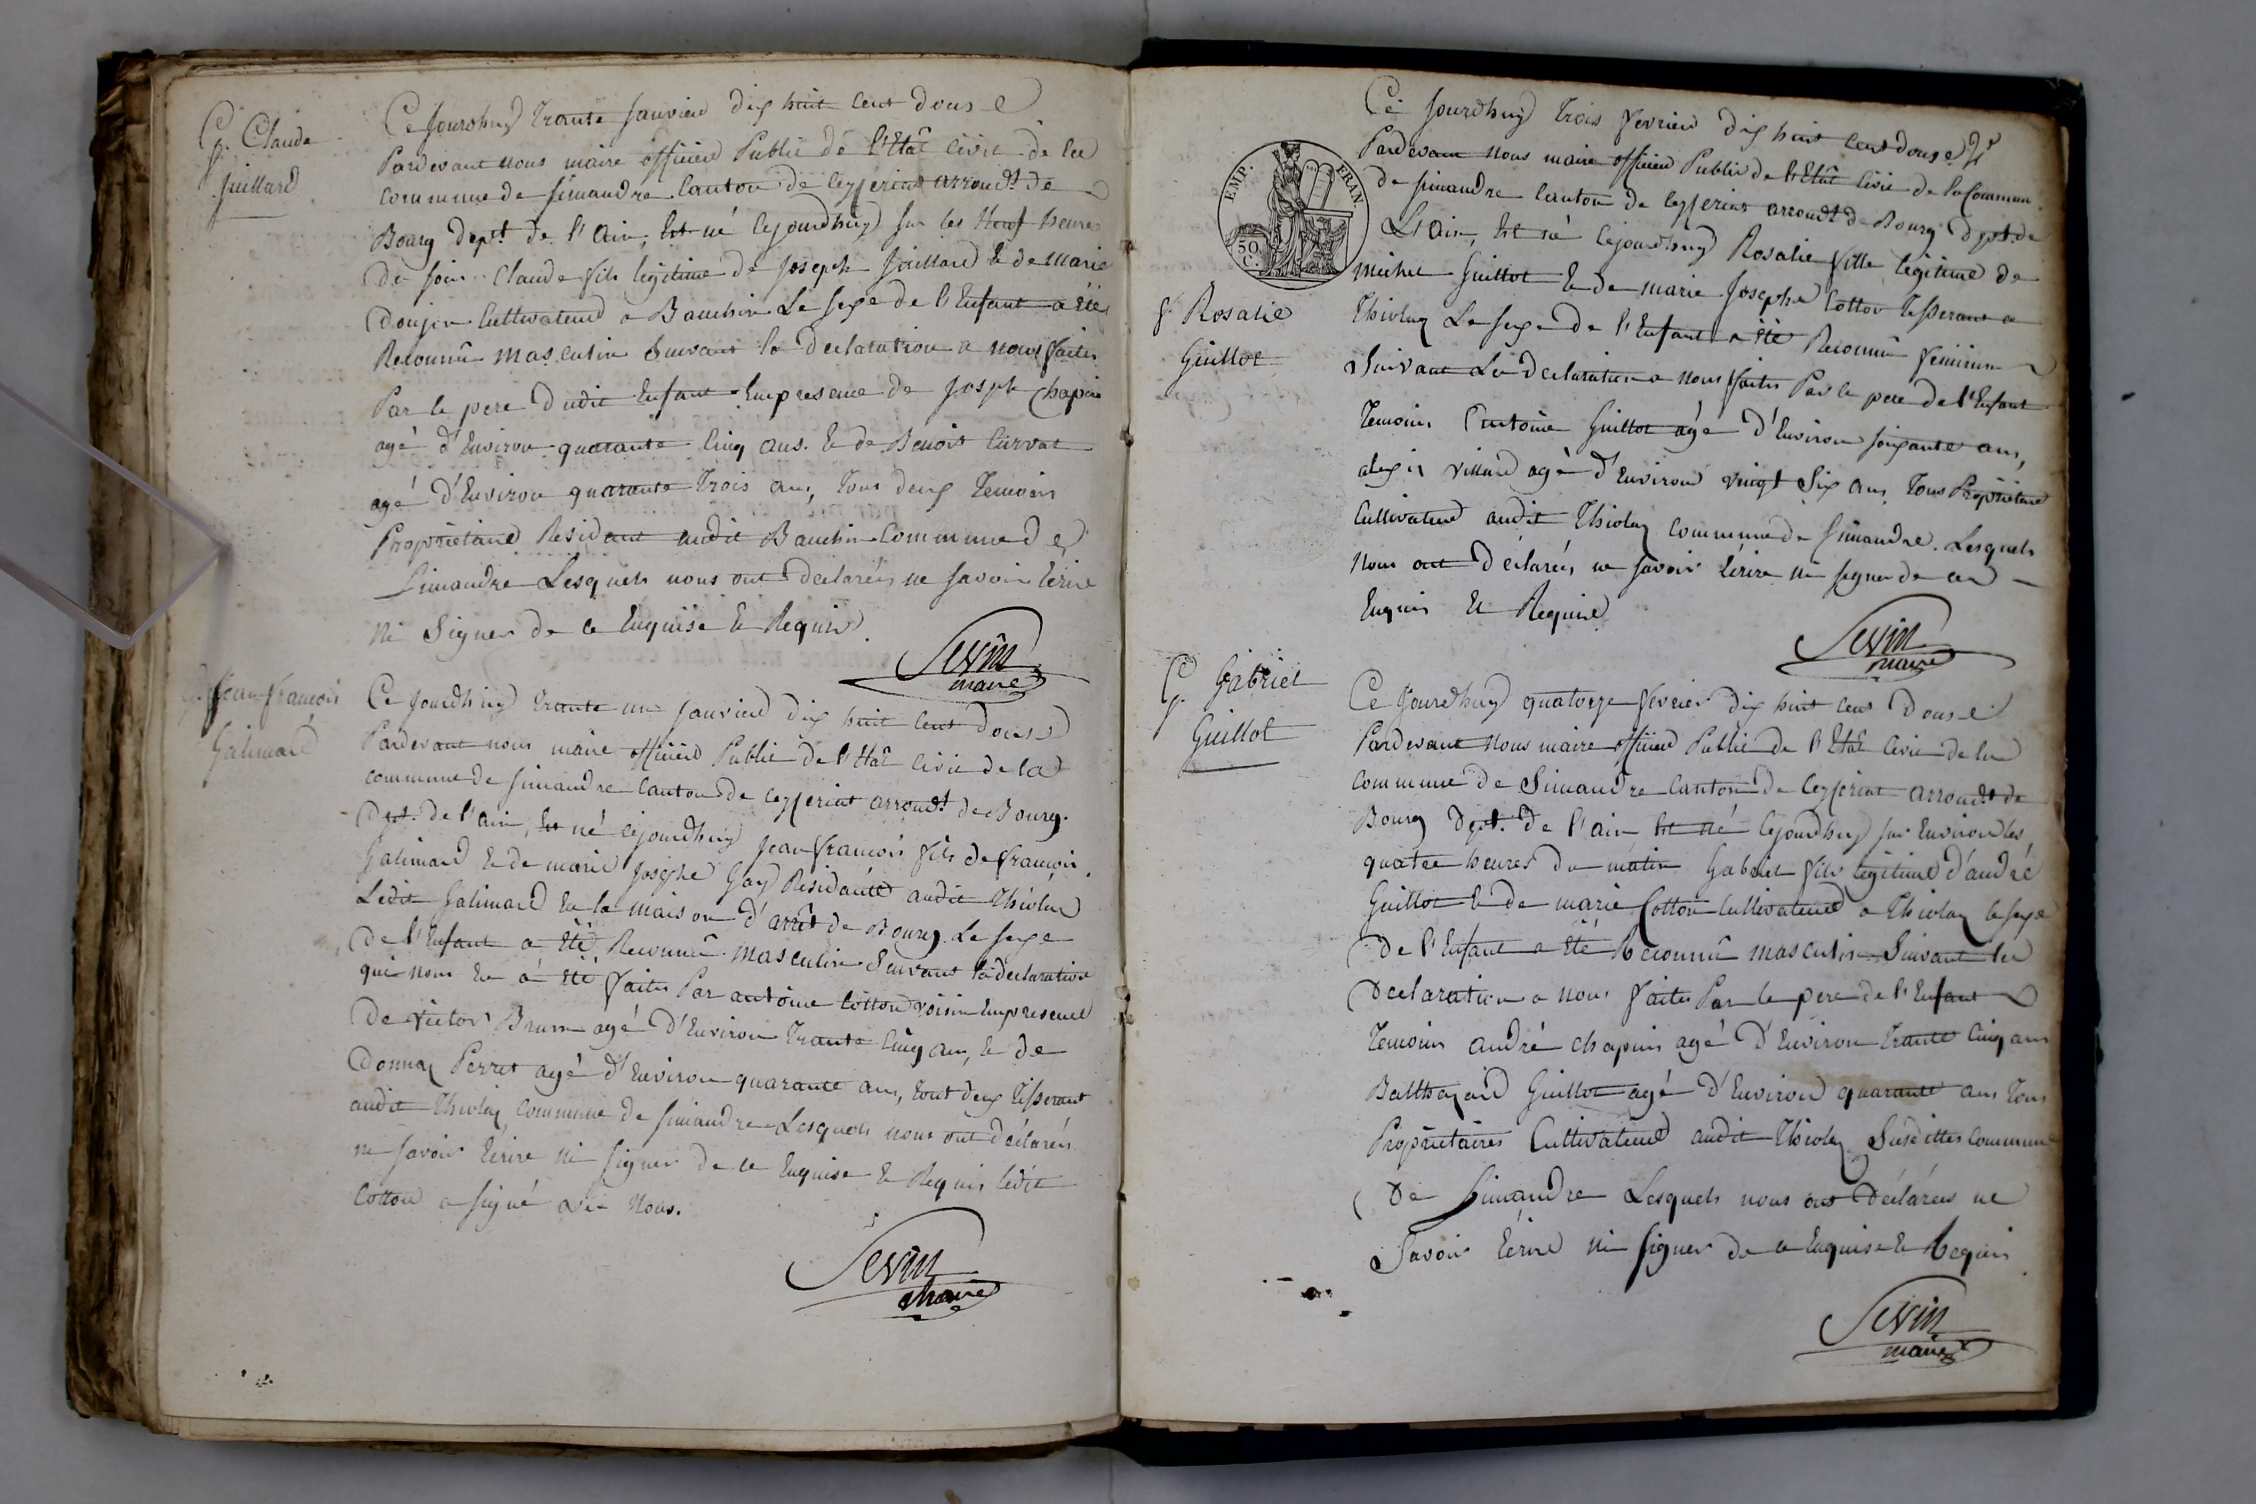 G. Claude
Juillard
Ce Jourdhuy trante Janvier dix huit cent douse
Pardevant nous maire officier Public de l'Etât civil de la
commune de Simandre Canton de Ceyseriat arrondt de
Bourg dept. de l'Ain, Est né cejourdhuy sur les Neuf heures
du soir Claude fils legitime de Joseph Juillard & de Marie
Donjon Cultivateur a Bauchin Le sexe de l'Enfant a été
Reconnû masculin Suivant la declaration a nous faites
Par le pere dudit Enfant Enpresence de Joseph Chapuis
agé d'Environ quarante Cinq ans. & de Benoit Curvat
agé d'Environ quarante Trois ans, Tous deux Temoins
Propriétaire Residant audit Bauchin Commune de
Simandre Lesquels nous ont declarés ne savoir Ecrire
ni Signer de ce Enquise & Requis
Sevin
maire
G. Jean françois
Galimard
Ce jourdhuy trante un Janvier dix huit cent douse
Pardevant nous maire officier Public de l'Etât civil de la
commune de Simandre Canton de Ceyseriat arrondt de Bourg.
Dept. de l'ain, Est né cejourdhuy Jean françois fils de françois
Galimard & de marie Josephe Gay Residante audit Thiolay
Ledit Galimard En la maison d'arrêt de Bourg. Le sexe
de l'Enfant a Eté Reconnû masculin Suivant la declaration
qui nous En a été faites Par antoine Cotton voisin Enpresence
De Victor Brun agé d'Environ trante Cinq ans, & de
Donnaz Perret agé d'Environ quarante ans, tout deux tisserant
audit Thiolay commune de Simandre Lesquels nous ont déclarés
ne savoir Ecrire ni signer de ce Enquise & Requis ledit
Cotton a signé avec Nous.
Sevin
maire
EMP. FRAN.
50
C.
f. Rosalie
Guillot
Ce Jourdhuy trois fevrier dix huit cent douse
Pardevant nous maire officier Public de l'Etât civil de la Commune
de Simandre Canton de Ceyseriat arrondt de Bourg dpt. de
L'ain, Est né cejourdhuy Rosalie fille legitime de
michel Guillot & de marie Josephe Cotton tisserant a
Thiolay Le sexe de l'Enfant a été Reconnû feminin
Suivant La declaration a nous faites Par le pere de l'Enfant
Temoins Antoine Guillot agé d'Environ soixante ans,
alexis villard agé d'Environ vingt Six ans Tous Propriétaire
Cultivateur audit Thiolay commune de Simandre. Lesquels
Nous ont déclarés ne savoir Ecrire ni signer de ce
Enquis & Requise
Sevin
maire
G. Gabriel
Guillot
Ce Jourdhuy quatorze fevrier dix huit cent Douse
Pardevant Nous maire officier Public de l'Etât Civil de la
commune de Simandre Canton de Ceyseriat arrondt de
Bourg dept. De l'ain Est né cejourdhuy sur Environ les
quatre heures du matin Gabriel fils legitime d'andré
Guillot & de marie Cotton Cultivateur a Thiolay le sexe
De l'Enfant a Eté Reconnû masculin Suivant la
Declaration a nous faites Par le pere de l'Enfant
Temoins andré chapuis agé D'Environ trante Cinq ans
Balthazard Guillot agé d'Environ quarante ans Tous
Propriétaires Cultivateur audit Thiolay Susdittes commune
De Simandre Lesquels nous ont déclarés ne
Savoir Ecrire ni signer de ce Enquise & Requis
Sevin
maire